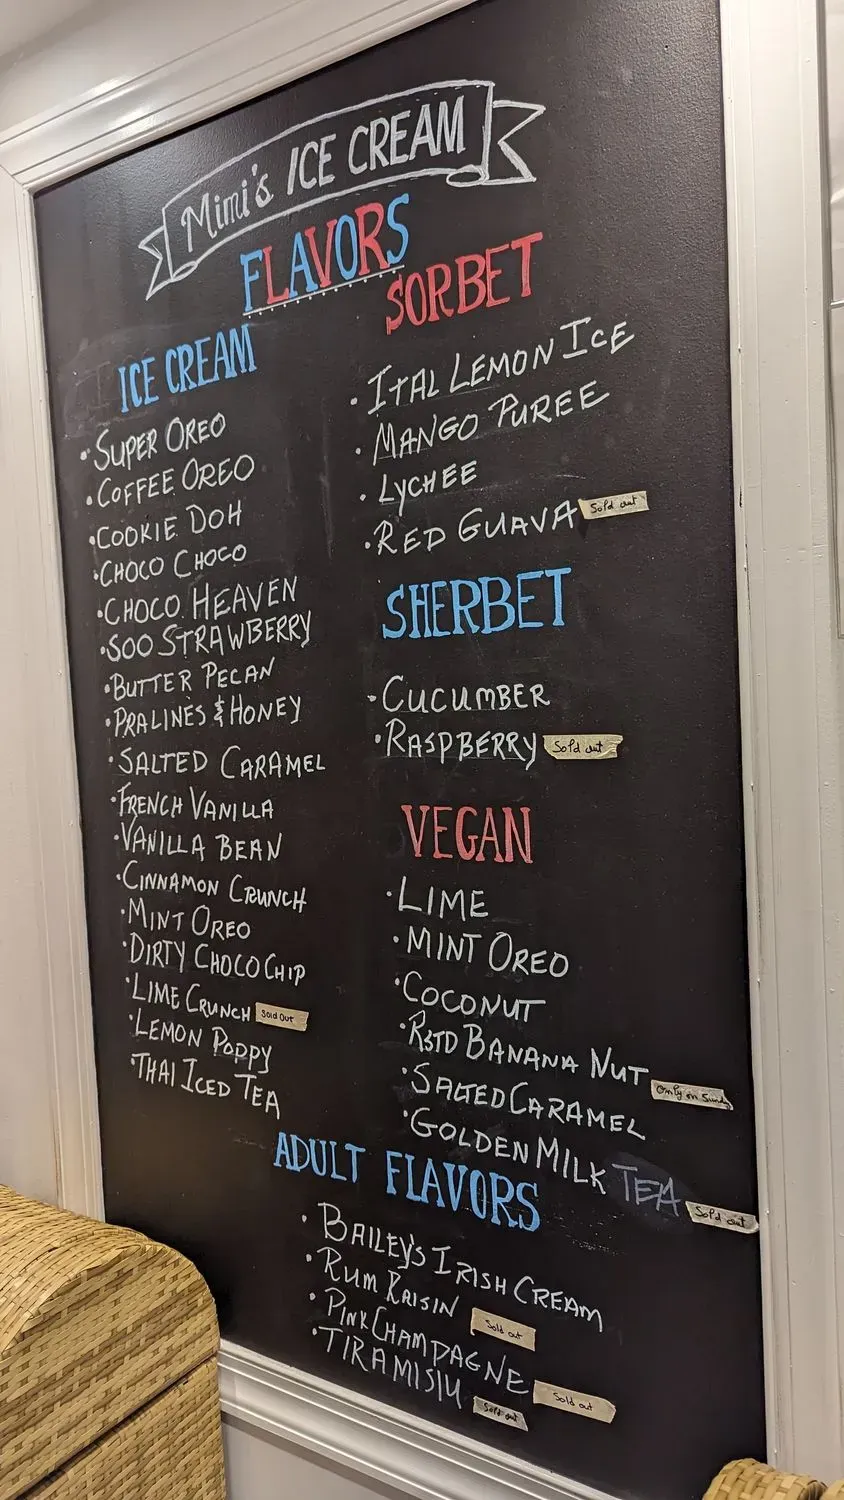 Mimi's ICE CREAM
FLAVORS
ICE CREAM
• SUPER OREO
• COFFEE OREO
• COOKIE DOH
• CHOCO CHOCO
• CHOCO HEAVEN
• SOO STRAWBERRY
• BUTTER PECAN
• PRALINES & HONEY
• SALTED CARAMEL
• FRENCH VANILLA
• VANILLA BEAN
• CINNAMON CRUNCH
• MINT OREO
• DIRTY CHOCO CHIP
• LIME CRUNCH Sold Out
• LEMON POPPY
• THAI ICED TEA
SORBET
• ITAL LEMON ICE
• MANGO PUREE
• LYCHEE
• RED GUAVA Sold out
SHERBET
• CUCUMBER
• RASPBERRY Sold out
VEGAN
• LIME
• MINT OREO
• COCONUT
• RSTD BANANA NUT Only on
• SALTED CARAMEL
• GOLDEN MILK TEA Sold out
ADULT FLAVORS
• BAILEY'S IRISH CREAM
• RUM RAISIN Sold out
• PINK CHAMPAGNE Sold out
• TIRAMISIU Sold out